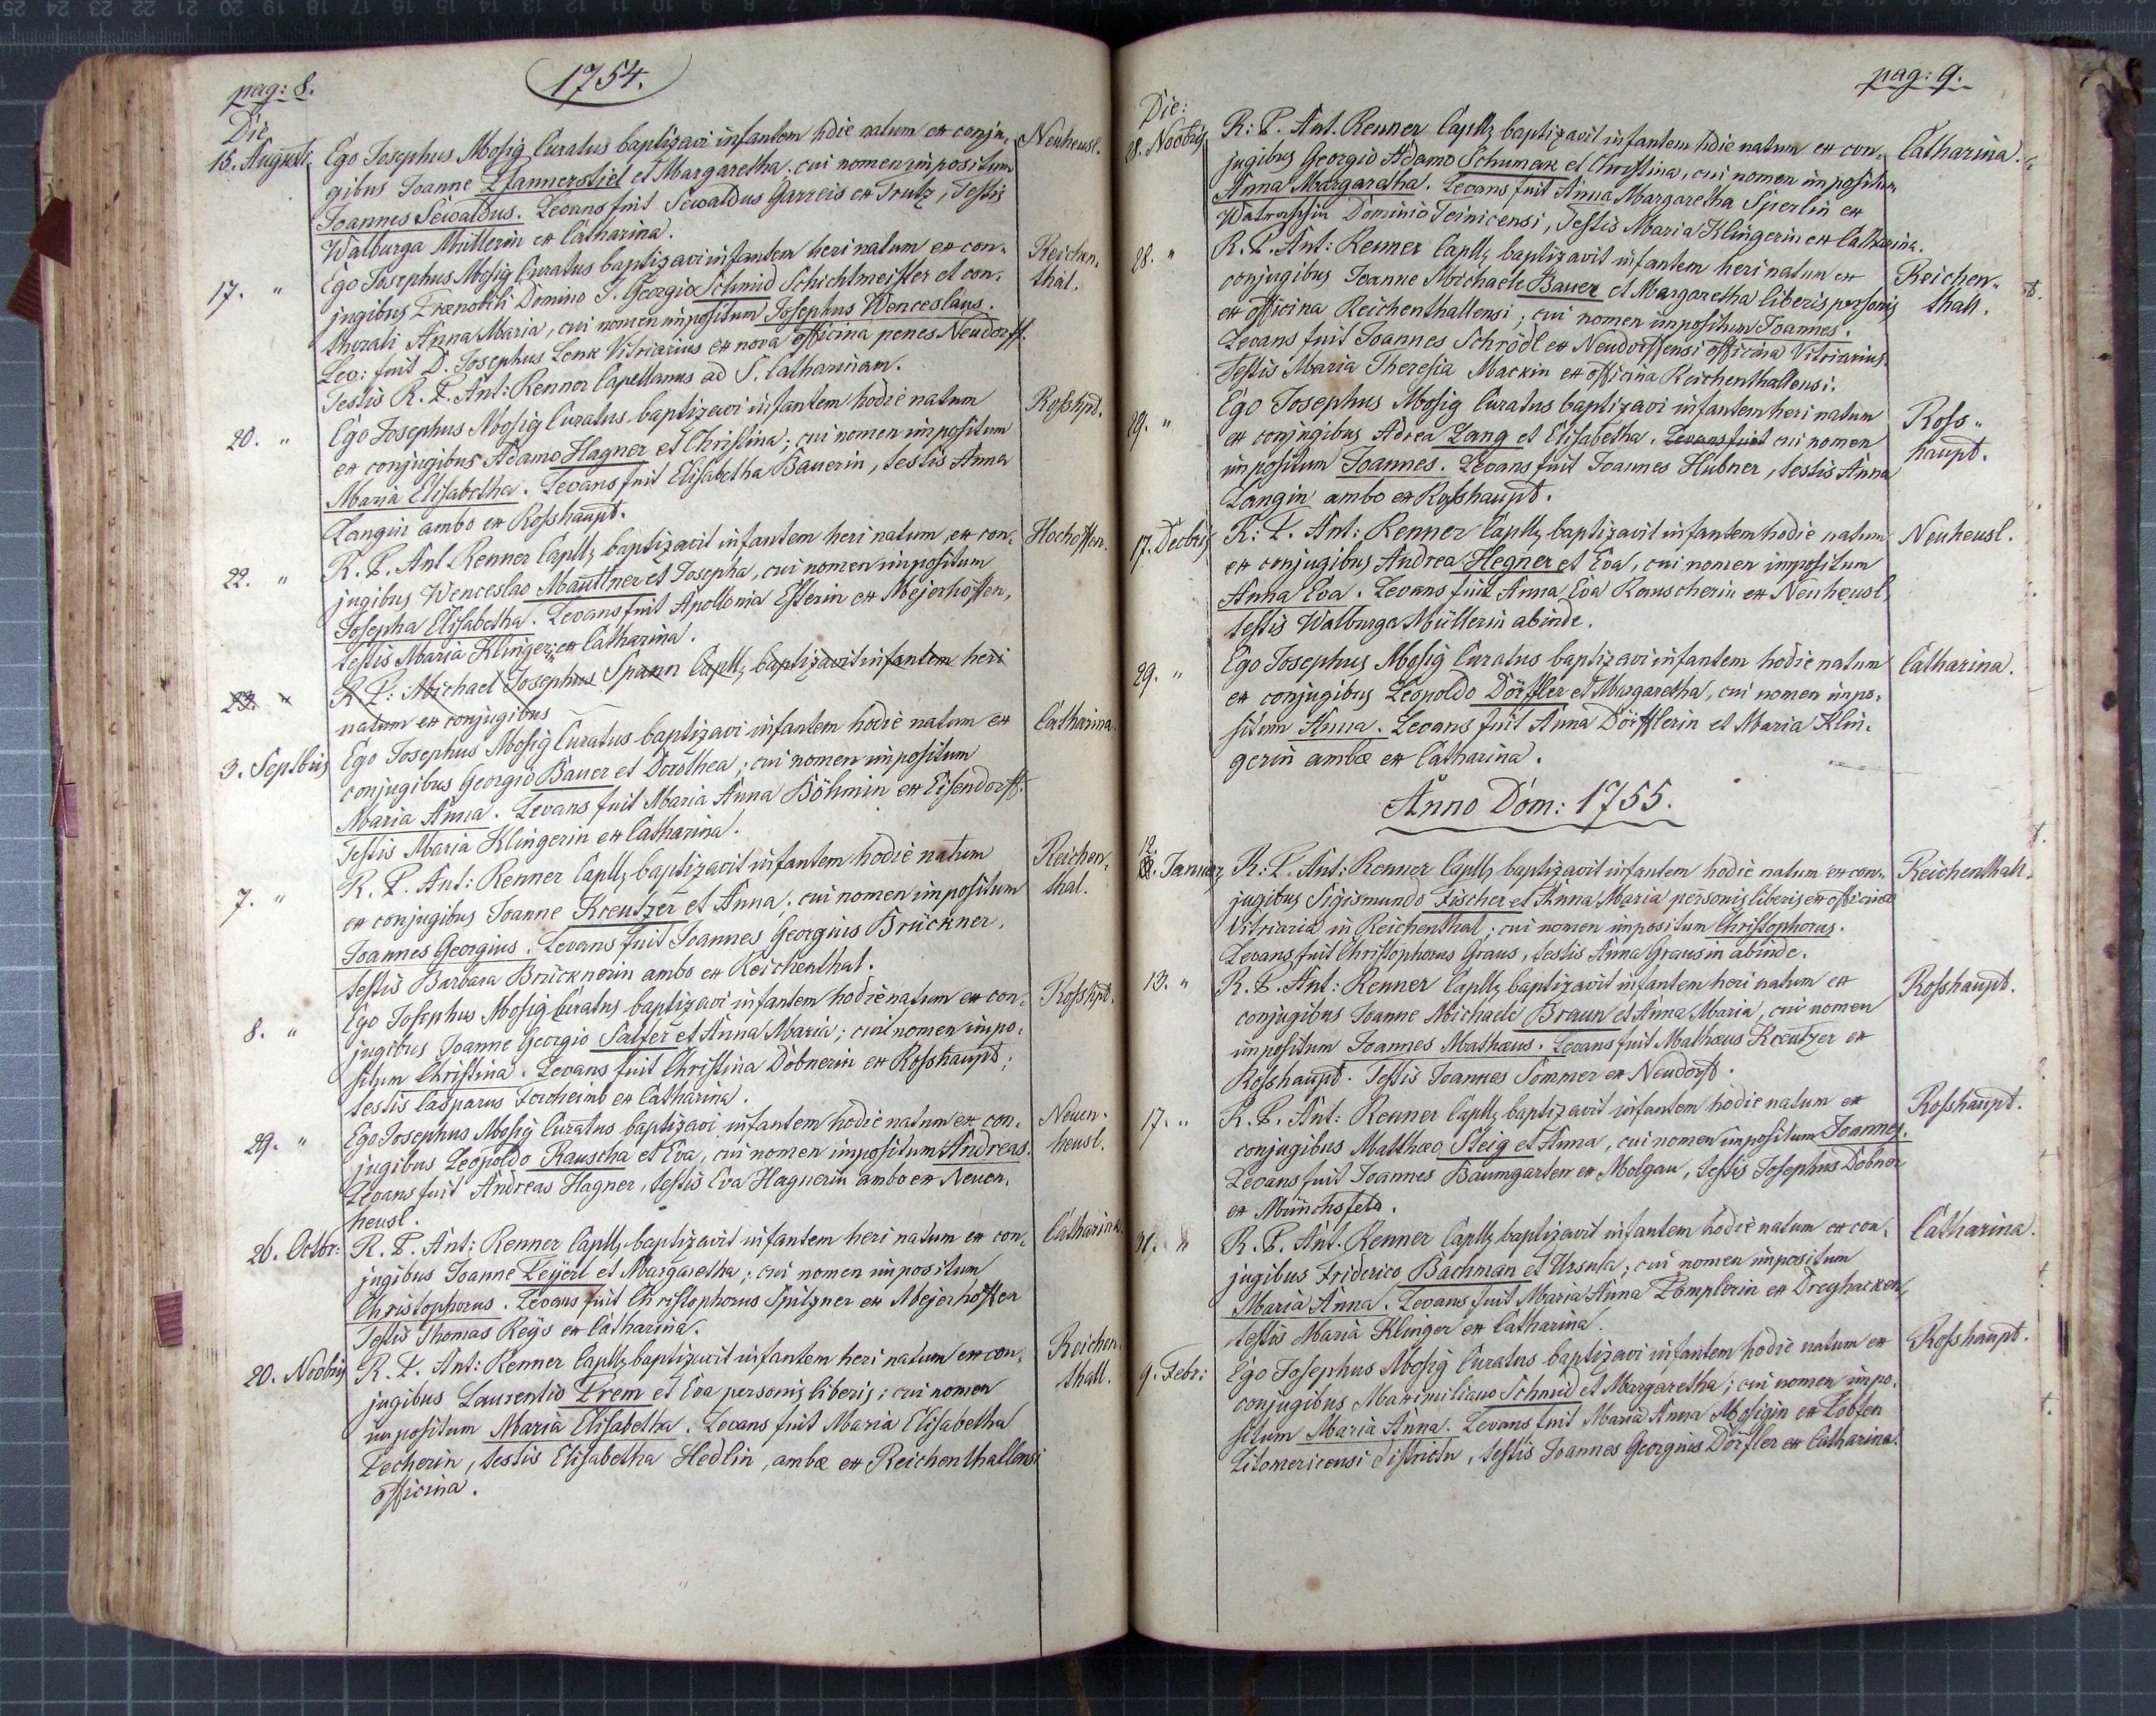 pag: 8.
1754.
Die
15. August. Ego Josephus Mosig Curatus baptizavi infantem hdie natum ex conju- Neuheusl.
gibus Joanne Pfannerstiel et Margaretha; cui nomen impositum
Joannes Sewaldus. Levans fuit Sewaldus Garreis ex Trutz, Testis
Walburga Mullerin ex Catharina.
17. " Ego Josephus Mosig Curatus baptizavi infantem heri natum ex con- Reichen-
jugibus Prænobili Domino J. Georgio Schmid Schichtmeister et con- thal.
thorali Anna Maria, cui nomen impositum Josephus Wenceslaus.
Lev: fuit D. Josephus Lenk Vitriarius ex nova officina penes Neudorff.
Testis R. P. Ant: Renner Capellanus ad S. Catharinam.
20. " Ego Josephus Mosig Curatus baptizavi infantem hodie natum Rosshpt.
ex conjugibus Adamo Hagner et Christina; cui nomen impositum
Maria Elisabetha. Levans fuit Elisabetha Bauerin, testis Anna
Langin ambo ex Rosshaupt.
22. " R. P. Ant Renner Caplls baptizavit infantem heri natum ex con- Hochoffen.
jugibus Wenceslao Mauttner et Josepha, cui nomen impositum
Josepha Elisabetha. Levans fuit Apollonia Esterin ex Mejerhöffen,
testis Maria Klinger: ex Catharina.
23. " R. P: Michael Josephus Spann Caplls baptizavit infantem heri
natum ex conjugibus
3. Septbris Ego Josephus Mosig Curatus baptizavi infantem hodie natum ex Catharina.
conjugibus Georgio Bauer et Dorothea; cui nomen impositum
Maria Anna. Levans fuit Maria Anna Böhmin ex Eisendorff.
Testis Maria Klingerin ex Catharina.
7. " R. P. Ant: Renner Caplls baptizavit infantem hodie natum Reichen-
ex conjugibus Joanne Kreutzer et Anna; cui nomen impositum thal.
Joannes Georgius. Levans fuit Joannes Georgius Brückner,
testis Barbara Brücknerin ambo ex Reichenthal.
8. " Ego Josephus Mosig Curatus baptizavi infantem hodie natum ex con- Rosshpt.
jugibus Joanne Georgio Salfer et Anna Maria; cui nomen impo-
situm Christina. Levans fuit Christina Dobnerin ex Rosshaupt;
testis Casparus Forcheimb ex Catharina.
29. " Ego Josephus Mosig Curatus baptizavi infantem hodie natum ex con- Neuen-
jugibus Leopoldo Rauscha et Eva, cui nomen impositum Andreas. heusl.
Levans fuit Andreas Hagner, testis Eva Hagnerin ambo ex Neuen-
heusl.
26. Octbr: R. P. Ant: Renner Caplls baptizavit infantem heri natum ex con- Catharina.
jugibus Joanne Leyerl et Margaretha; cui nomen impositum
Christophorus. Levans fuit Christophorus Spitzner ex Mejerhöffen
Testis Thomas Reys ex Catharina.
20. Novbris R. P. Ant: Renner Caplls baptizavit infantem heri natum ex con- Reichen-
jugibus Laurentio Prem et Eva personis liberis; cui nomen thall.
impositum Maria Elisabetha. Levans fuit Maria Elisabetha
Pecherin, testis Elisabetha Hedlin, ambæ ex Reichenthallensi
officina.
pag: 9.
Die:
28. Novbris R: P. Ant. Renner Caplls baptizavit infantem hdie natum ex con- Catharina.
jugibus Georgio Adamo Schuman et Christina, cui nomen impositum
Anna Margaretha. Levans fuit Anna Margaretha Sperlin ex
Dominio Teinicensi, Testis Maria Klingerin ex Catharina.
28. " R. P. Ant: Renner Caplls baptizavit infantem heri natum ex Reichen-
conjugibus Joanne Michaele Bauer et Margaretha liberis personis thall.
ex officina Reichenthallensi; cui nomen impositum Joannes.
Levans fuit Joannes Schrödl ex Neudorffensi officina Vitriarius.
Testis Maria Theresia Mackin ex officina Reichenthallensi.
29. " Ego Josephus Mosig Curatus baptizavi infantem heri natum Ross-
ex conjugibus Adrea Lang et Elisabetha. Levans fuit cui nomen haupt.
impositum Joannes. Levans fuit Joannes Hübner, testis Anna
Langin ambo ex Rosshaupt.
17. Decbris R: P. Ant: Renner Caplls baptizavit infantem hodie natum Neuheusl.
ex conjugibus Andrea Hegner et Eva, cui nomen impositum
Anna Eva. Levans fuit Anna Eva Rauscherin ex Neuheusl,
testis Walburga Müllerin abinde.
29. " Ego Josephus Mosig Curatus baptizavi infantem hodie natum Catharina.
ex conjugibus Leopoldo Dörffler et Margaretha, cui nomen impo-
situm Anna. Levans fuit Anna Dörfflerin et Maria Klin-
gerin ambæ ex Catharina.
Anno Dom: 1755.
12. Januar R: P. Ant: Renner Caplls baptizavit infantem hodie natum ex con- Reichenthall.
jugibus Sigismundo Fischer et Anna Maria personis liberis ex officina
Vitriaria in Reichenthal; cui nomen impositum Christophorus.
Levans fuit Christophorus Graus, testis Anna Grausin abinde.
13. " R. P. Ant: Renner Caplls baptizavit infantem heri natum ex Rosshaupt.
conjugibus Joanne Michaele Braun et Anna Maria, cui nomen
impositum Joannes Mathæus. Levans fuit Mathæus Kreutzer ex
Rosshaupt. Testis Joannes Sommer ex Neudorf.
17. " R. P. Ant: Renner Caplls baptizavit infantem hodie natum ex Rosshaupt.
conjugibus Matthæo Steig et Anna, cui nomen impositum Joannes.
Levans fuit Joannes Baumgarten ex Molgau, testis Josephus Dobner
ex Münchsfeld.
31. " R. P. Ant. Renner Caplls baptizavit infantem hodie natum ex con- Catharina.
jugibus Friderico Bachman et Ursula; cui nomen impositum
Maria Anna. Levans fuit Maria Anna Pomplerin ex Dreyhacken,
testis Maria Klinger ex Catharina.
9. Febr: Ego Josephus Mosig Curatus baptizavi infantem hodie natum ex Rosshaupt.
conjugibus Maximiliano Schmid et Margaretha; cui nomen impo-
situm Maria Anna. Levans fuit Maria Anna Mosigin ex Lobten
Litomericensi districtu, testis Joannes Georgius Dörfler ex Catharina.